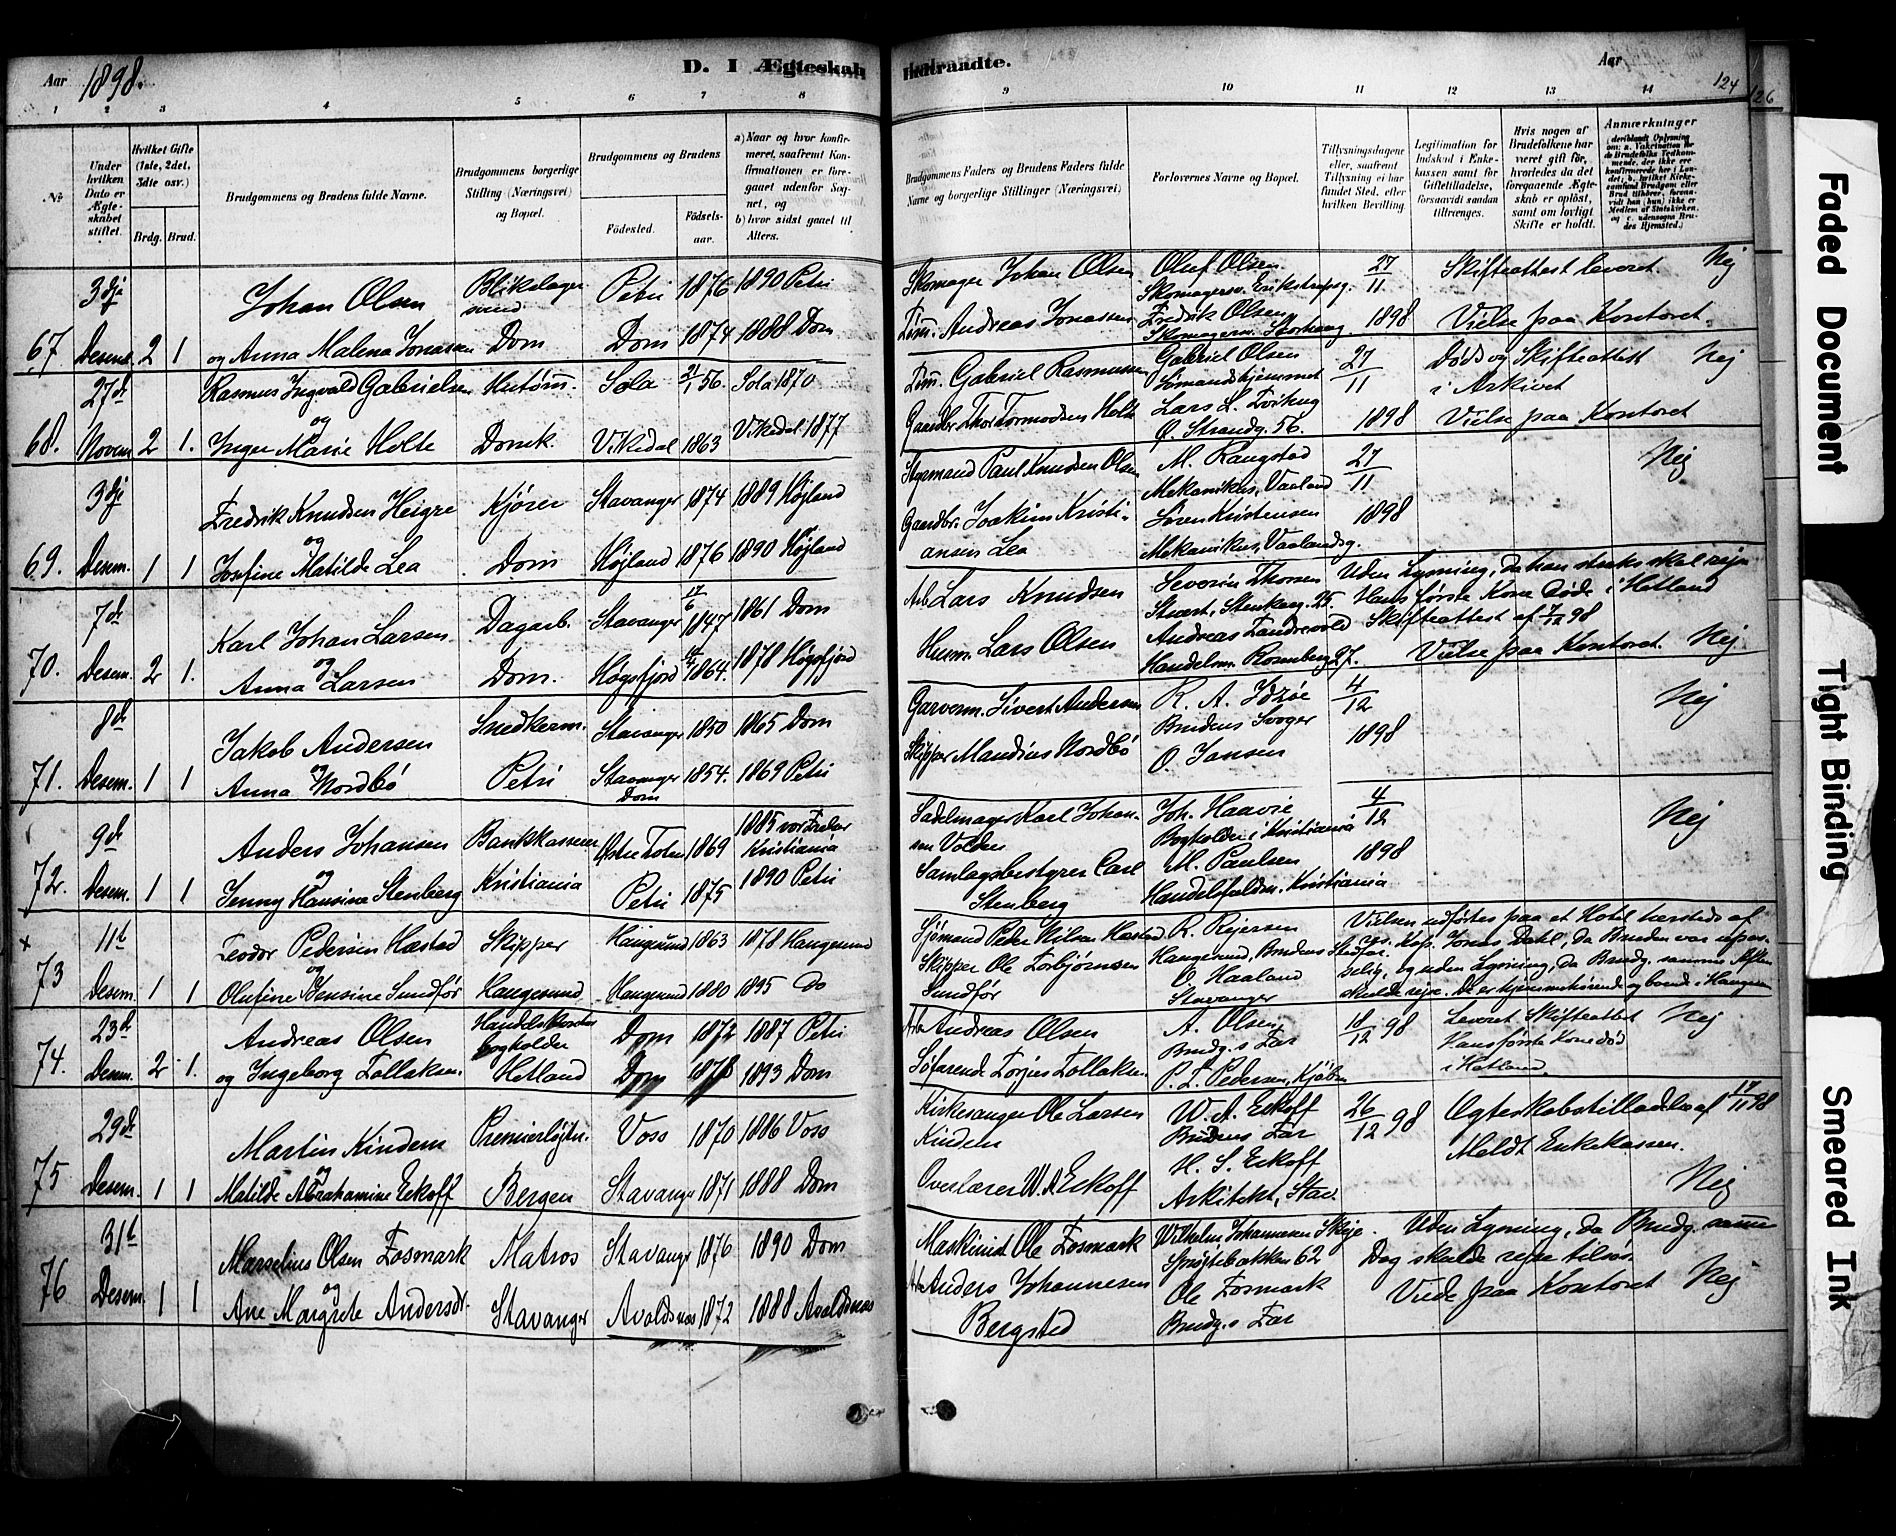 Aar 1898.
D. I Ægteskab Indtraadte.
Aar
124
126
1 2 3 4 5 6 7 8 9 10 11 12 13 14
№
Under hvilken Dato er Ægteskabet stiftet.
Hvilket Gifte (1ste, 2det, 3dte osv.)
Brdg. Brud.
Brudgommens og Brudens fulde Navne.
Brudgommens borgerlige Stilling (Næringsvei) og Bopæl.
Brudgommens og Brudens
Fødested.
Fødsels-aar.
a) Naar og hvor konfirmeret, saafremt Konfirmationen er foregaaet udenfor Sognet, og
b) hvor sidst gaaet til Alters.
Brudgommens Faders og Brudens Faders fulde Navne og borgerlige Stillinger (Næringsvei)
Forlovernes Navne og Bopæl.
Tillysningsdagene eller, saafremt Tillysning ei har fundet Sted, efter hvilken Bevilling.
Legitimation for Indskud i Enkekassen samt for Giftetilladelse, forsaavidt saadan tiltrænges.
Hvis nogen af Brudefolkene har været gift før, hvorledes da det foregaaende Ægteskab er opløst, samt om lovligt Skifte er holdt.
Anmærkninger
67 3dje Desem. 2 1
Johan Olsen Blikslagersvend Petri 1876 1890 Petri
og Anna Malena Jonassen Dom Dom 1874 1888 Dom
Skomager Johan Olsen
Tøm. Andreas Jonassen
Oluf Olsen
Skomagersv. Erikstrupsg.
Fredrik Olsen
27/11 1898
Skifteattest leveret. Nej
Vielse paa Kontoret.
68. 27de Novem 2 1.
Rasmus Ingvald Gabrielsen Hustøm. Sola 21/1 56. Sola 1870
og
Inger Marie Holte Domk. Vikedal 1863 Vikedal 1877
Tøm. Gabriel Rasmussen
Gaardbr. Thor Tormodsen Holte
Gabriel Olsen
Sømandshjemmet
Lars L.
Ø. Strandg. 56.
27/11 1898
Døds og Skifteattest Nej
i Arkivet
Vielse paa Kontoret
69. 3dje Desem. 1 1
Fredrik Knudsen Heigre Kjører Stavanger 1874 1889 Højland
og
Josefine Matilde Lea Dom Højland 1876 1890 Højland
Styrmand Paul Knudsen Olsen
Gaardbr. Joakim Kristi-
ansen Lea
M. Raugstad
Mekanikus, Vaaland
Søren Kristensen
Mekanikus, Vaalandsg.
27/11 1898
Nej
70. 7de Desem. 2 1.
Karl Johan Larsen Dagarb. Stavanger 17/6 1847 1861 Dom
og
Anna Larsen Dom. Høgsfjord 1864. 1878 Høgsfjord
Arb Lars Knudsen
Husm. Lars Olsen
Severin Thorsen
Stuert, Stenkarg. 25.
Andreas Tandrevold
Handelsm. Rosenberg 27.
Uden Lysning, da han straks skal rejse
Hans første Kone døde i Hetland
Skifteattest af 7/12 98
Vielse paa Kontoret. Nej
71. 8de Desem. 1 1
Jakob Andersen Snedkerm. Stavanger 1850 1865 Dom
og
Anna Nordbö Petri Stavanger Dom 1854. 1869 Petri
Garverm. Sivert Andersen
Skipper Mandius Nordbö
R. A. Idsøe
Brudens Svoger
O. Jansen
4/12 1898
Nej
72. 9de Desem. 1 1
Anders Johansen Bankkasserer Østre Toten 1869 1885 vor Frelser Kristiania
og
Jenny Hansine Stenberg Kristiania Petri 1875 1890 Petri
Sadelmager Karl Johan-
sen Volden
Samlagsbestyrer Carl
Stenberg
Joh. Haavie
Bogholder i Kristiania
M. Paulsen
Handelsfuldm. Kristiania
4/12 1898
Nej
x
73 11te Desem. 1 1
Teodor Pedersen Hæstad Skipper Haugesund 1863 1878 Haugesund
og
Olufine Bensine Sundför Haugesund Haugesund 1880 1895 Do
Sjømand Peder Nilsen Hæstad
Skipper Ole Torbjørnsen
Sundför
R. Rejersen
Haugesund, Brudens Stedfar.
O. Haaland
Stavanger
Vielsen udførtes paa et Hotel hersteds af
res. Kap. Jonas Dahl, da Bruden var upas-
selig, og uden Lysning, da Brudg. samme Aften
skulde rejse. De er hjemmehørende og boende i Haugesun
74. 23de Desem. 2 1.
Andreas Olsen Handelsbogholder Dom 1872 1887 Petri
og Ingeborg Tollaksen Hetland Dom 1878 1893 Dom
Arb Andreas Olsen
Søfarende Torjus Tollaksen
A. Olsen,
Brudg.s Far
P. T. Pedersen, Kjøbm
18/12 98
Leveret Skifteattest Nej
Hans første Kone død
i Hetland.
75 29de Desem. 1 1
Martin Kindem Premierløjtn. Voss 1870 1886 Voss
og
Matilde Abrahamine Eckoff Bergen Stavanger 1871 1888 Dom
Kirkesanger Ole Larsen
Kindem
Overlærer W. A. Eckoff
W. A. Eckoff
Brudens Far
H. S. Eckoff
Arkitekt, Stav.
26/12 98
Ægteskabstilladelse af 17/11 98
Meldt Enkekassen.
Nej
76 31te Desem 1 1
Marselius Olsen Fosmark Matros Stavanger 1876 1890 Dom
og
Ane Margrete Andersdr. Stavanger Avaldsnes 1872 1888 Avaldsnes
Maskinist Ole Fosmark
Arb Anders Johannesen
Bergsted
Wilhelm Johannesen Skeje
Sprøjtebakken 62
Ole Fosmark
Brudg.s Far
Uden Lysning, da Brudg. samme
Dag skulde rejse tilsøs.
Viede paa Kontoret Nej
Faded Document
Tight Binding
Smeared Ink